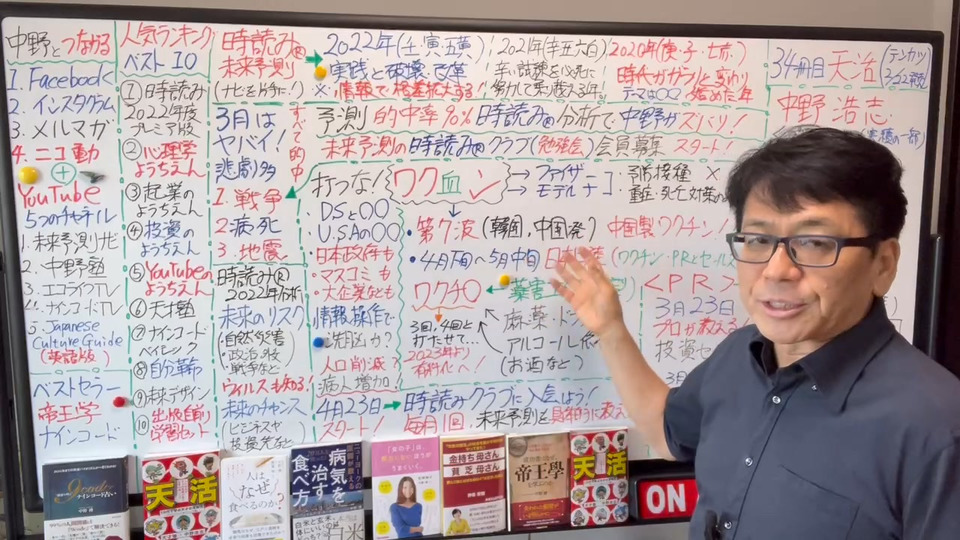 中野とつながる
1. Facebook
2. インスタグラム
3. メルマガ
4. ニコ動
+
YouTube
5つのチャネル
1. 未来予測ナビ
2. 中野塾
3. エコライフTV
4. ナインコードTV
5. Japanese
Culture Guide
(英語版)
ベストセラー
帝王学
ナインコード
人気ランキング
ベスト10
① 時読み
2022年度
プレミア版
② 心理学
ようちえん
③ 起業の
ようちえん
④ 投資の
ようちえん
⑤ YouTubeの
ようちえん
⑥ 天才塾
⑦ ナインコード
ベイシック
⑧ 自伝革命
⑨ 未来デザイン
⑩ 出版直前
学習セット
時読み
未来予測
(ナビを片手に!)
3月は
ヤバイ!
悲劇多
すべて的中
1. 戦争
2. 病死
3. 地震
時読み
2022年分析
未来のリスク
・自然災害
・政治の乱
・戦争など
ウイルスも知る!
未来のチャンス
(ビジネスや
投資先など
2022年(壬・寅・五黄)
・実践と破壊・改革
※情報で格差拡大する
2021年(辛丑六白)
辛い試練を必死に
努力して乗り越える年!
2020年(庚・子・七赤)
時代がガラッと変わり
テーマは○○ 始めた年
34冊目 天活
(テンカツ)
中野 浩志
予測的中率70%時読み分析で中野がズバリ!
未来予測の時読みクラブ(勉強会)会員募集 スタート!
打つな!
ワク血ン
→ ファイザー
→ モデルナ
予防接種 ×
重症・死亡対策
・DSと○○
・U.S.Aの○○
・日本政府も
・マスコミも
・大企業なども
情報操作で
人口削減?
病人増加!
・第7波(韓国, 中国発)中国製ワクチン!
・4月下旬〜5月中旬
(ワクチン・PRとセール
ワクチ○
薬害
3回, 4回と
打たせて…
2023年より
有料化へ!
麻薬・ド
アルコール依
(お酒など)
<PR>
3月23日
プロが教える
投資セ
4月23日 → 時読みクラブに入会しよう!
スタート!
毎月1回, 未来予測と具体的に教え
ナインコード占い
天活
なぜ
食べるのか?
病気を
治す
食べ方
金持ち母さん
貧乏母さん
帝王學
天活
ON